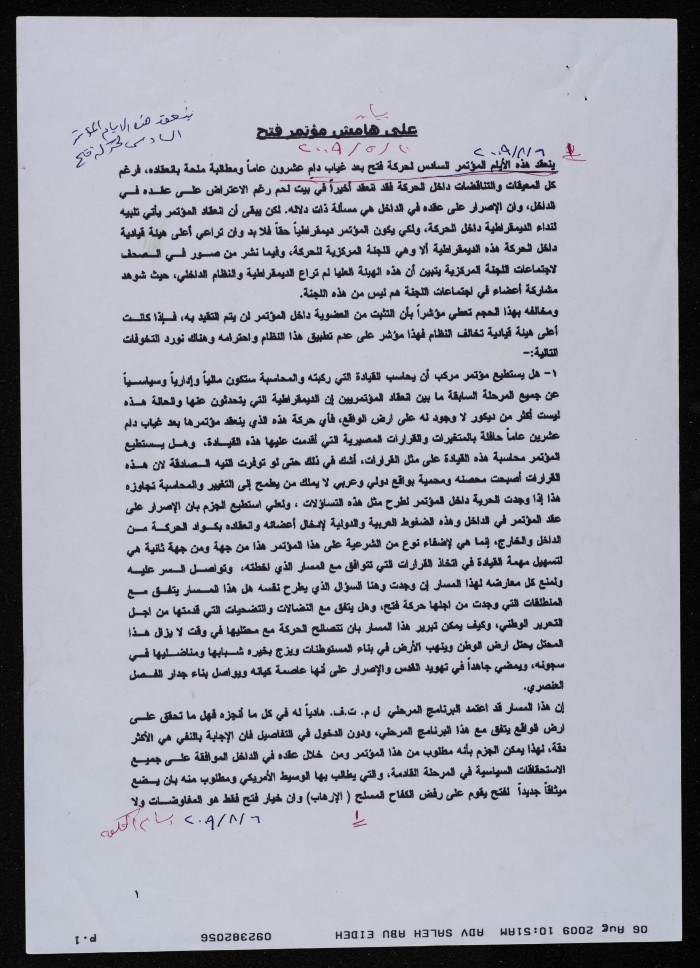 بيان
على هامش مؤتمر فتح
ينعقد هذه الايام المؤتمر
السادس لحركة فتح
٢٠٠٩/٨/٦
ينعقد هذه الأيام المؤتمر السادس لحركة فتح بعد غياب دام عشرون عاماً ومطالبة ملحة بانعقاده، فرغم
كل المعيقات والتناقضات داخل الحركة فقد انعقد أخيراً في بيت لحم رغم الاعتراض على عقده في
الداخل، وان الإصرار على عقده في الداخل هي مسألة ذات دلاله. لكن يبقى أن انعقاد المؤتمر يأتي تلبيه
لنداء الديمقراطية داخل الحركة، ولكي يكون المؤتمر ديمقراطياً حقاً فلا بد وان تراعي أعلى هيئة قيادية
داخل الحركة هذه الديمقراطية ألا وهي اللجنة المركزية للحركة، وفيما نشر من صور في الصحف
لاجتماعات اللجنة المركزية يتبين أن هذه الهيئة العليا لم تراع الديمقراطية والنظام الداخلي، حيث شوهد
مشاركة أعضاء في اجتماعات اللجنة هم ليس من هذه اللجنة.
ومخالفه بهذا الحجم تعطي مؤشراً بأن التثبت من العضوية داخل المؤتمر لن يتم التقيد به، فإذا كانت
أعلى هيئة قيادية تخالف النظام فهذا مؤشر على عدم تطبيق هذا النظام واحترامه وهناك نورد التخوفات
التالية:-
١- هل يستطيع مؤتمر مركب أن يحاسب القيادة التي ركبته والمحاسبة ستكون مالياً وإدارياً وسياسياً
عن جميع المرحلة السابقة ما بين انعقاد المؤتمرين إن الديمقراطية التي يتحدثون عنها والحالة هذه
ليست أكثر من ديكور لا وجود له على ارض الواقع، فأي حركة هذه الذي ينعقد مؤتمرها بعد غياب دام
عشرين عاماً حافلة بالمتغيرات والقرارات المصيرية التي أقدمت عليها هذه القيادة، وهل يستطيع
المؤتمر محاسبة هذه القيادة على مثل القرارات، أشك في ذلك حتى لو توفرت النيه الصادقة لان هذه
القرارات أصبحت محصنه ومحمية بواقع دولي وعربي لا يملك من يطمح إلى التغيير والمحاسبة تجاوزه
هذا إذا وجدت الحرية داخل المؤتمر لطرح مثل هذه التساؤلات ، ولعلي استطيع الجزم بان الإصرار على
عقد المؤتمر في الداخل وهذه الضغوط العربية والدولية لإدخال أعضائه وانعقاده بكواد الحركة من
الداخل والخارج، إنما هي لإضفاء نوع من الشرعية على هذا المؤتمر هذا من جهة ومن جهة ثانية هي
لتسهيل مهمة القيادة في اتخاذ القرارات التي تتوافق مع المسار الذي اخطته، وتواصل السر عليه
ولمنع كل معارضه لهذا المسار إن وجدت وهنا السؤال الذي يطرح نفسه هل هذا المسار يتفق مع
المنطلقات التي وجدت من اجلها حركة فتح، وهل يتفق مع النضالات والتضحيات التي قدمتها من اجل
التحرير الوطني، وكيف يمكن تبرير هذا المسار بان تتصالح الحركة مع محتليها في وقت لا يزال هذا
المحتل يحتل ارض الوطن وينهب الأرض في بناء المستوطنات ويزج بخيره شبابها ومناضليها في
سجونه، ويمضي جاهداً في تهويد القدس والإصرار على أنها عاصمة كيانه ويواصل بناء جدار الفصل
العنصري.
إن هذا المسار قد اعتمد البرنامج المرحلي ل م.ت.ف. هادياً له في كل ما أنجزه فهل ما تحقق على
ارض الواقع يتفق مع هذا البرنامج المرحلي، ودون الدخول في التفاصيل فان الإجابة بالنفي هي الأكثر
دقة، لهذا يمكن الجزم بأنه مطلوب من هذا المؤتمر ومن خلال عقده في الداخل الموافقة على جميع
الاستحقاقات السياسية في المرحلة القادمة، والتي يطالب بها الوسيط الأمريكي ومطلوب منه بان يضع
ميثاقاً جديداً لفتح يقوم على رفض الكفاح المسلح ( الإرهاب) وان خيار فتح فقط هو المفاوضات ولا
٢٠٠٩/٨/٦
١
١
06 Aug 2009 10:51AM ADV SALEH ABU EIDEH 092382056 P.1